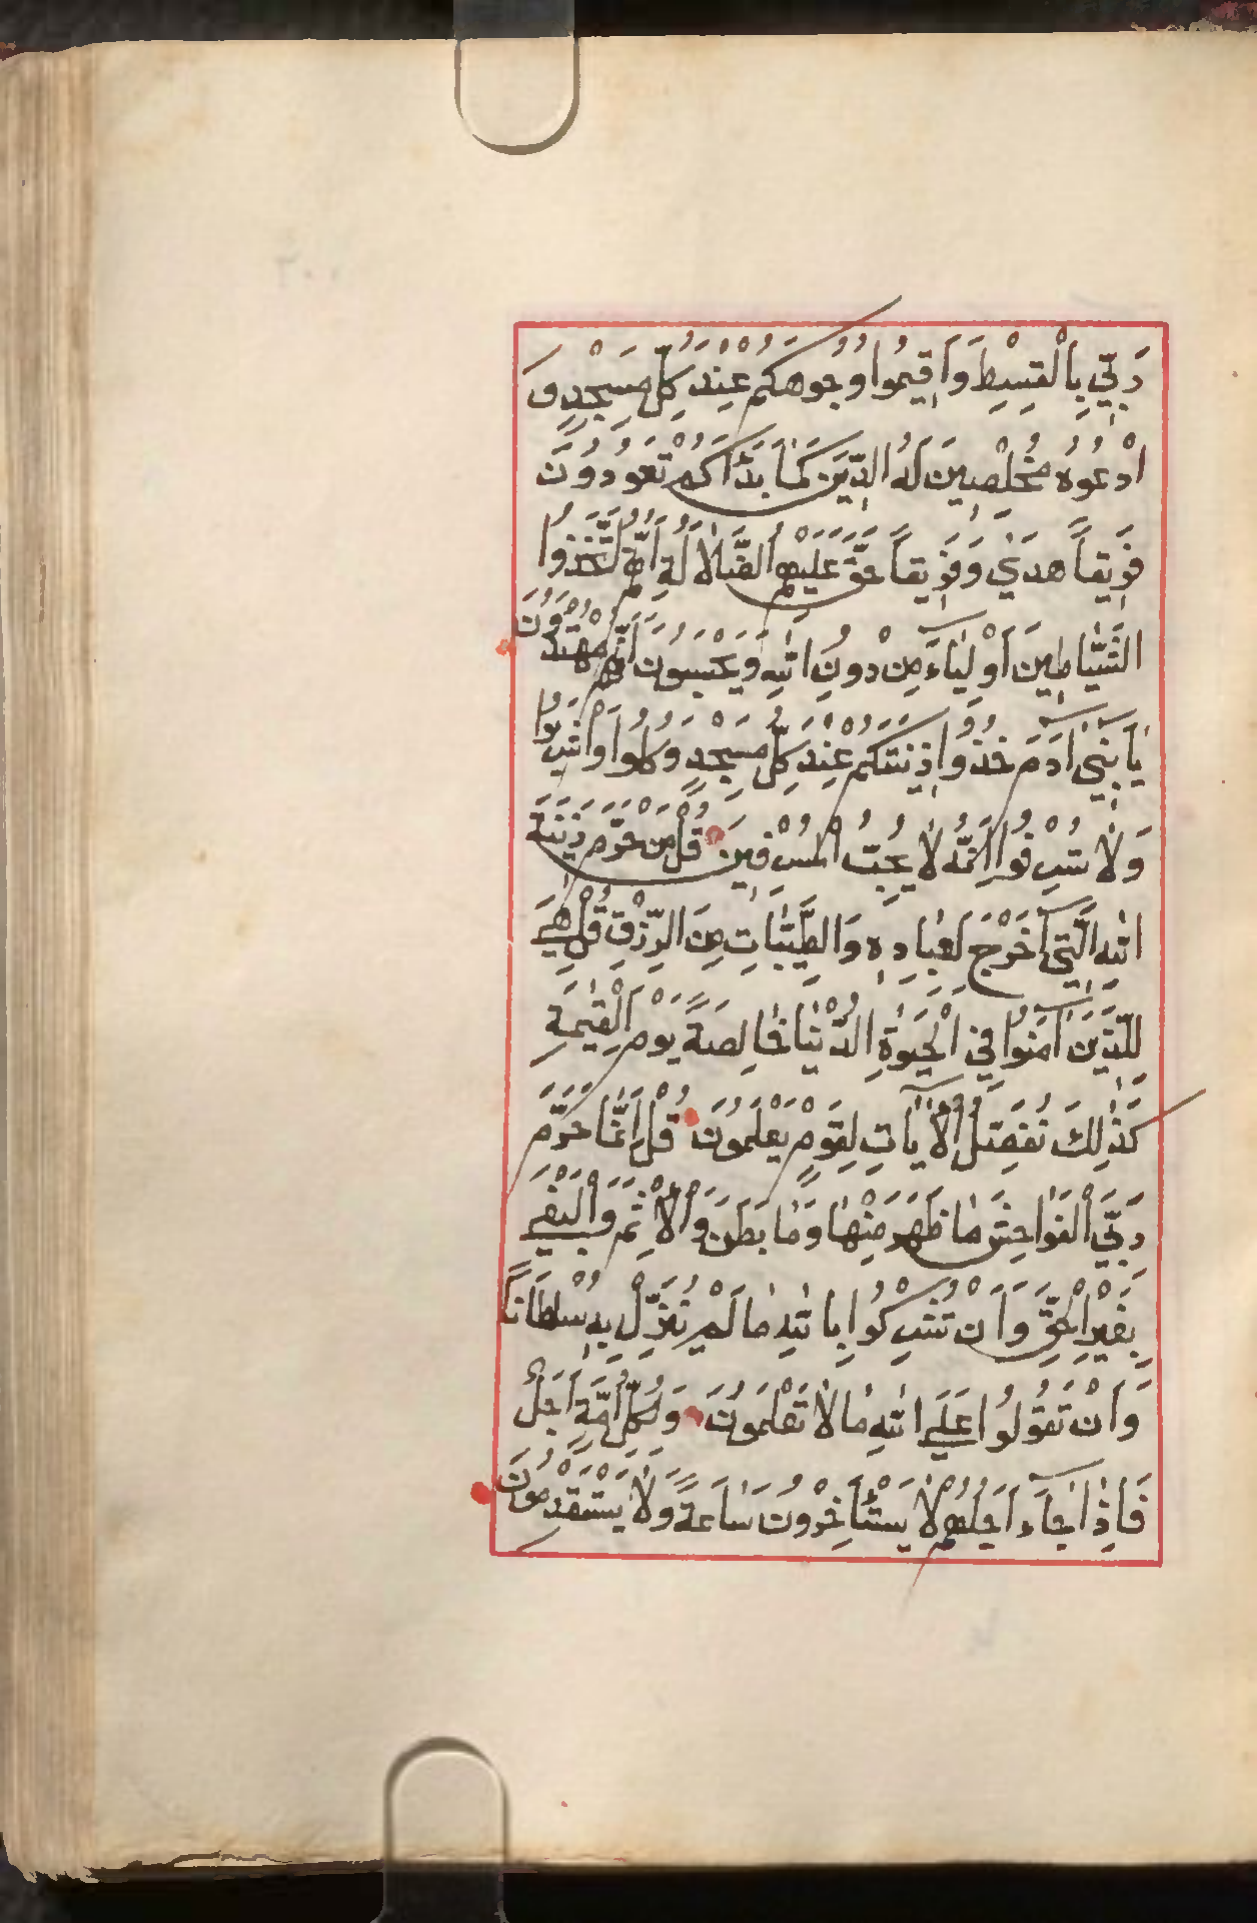 رَبِّي بِالْقِسْطِ وَاَقِيمُوا وُجُوهَكُمْ عِنْدَ كُلِّ مَسْجِدٍ وَ
ادْعُوهُ مُخْلِصِينَ لَهُ الدِّينَ كَمٰا بَدَاَكُمْ تَعُودُونَ
فَرِيقاً هَدَىٰ وَفَرِيقاً حَقَّ عَلَيْهِمُ الضَّلاٰلَةُ اِنَّهُمُ اتَّخَذُوا
الشَّيٰاطِينَ اَوْلِيٰاءَ مِنْ دُونِ اللهِ وَيَحْسَبُونَ اَنَّهُمْ مُهْتَدُونَ
يٰا بَنِي اٰدَمَ خُذُوا زِينَتَكُمْ عِنْدَ كُلِّ مَسْجِدٍ وَكُلُوا وَاشْرَبُوا
وَلاٰ تُسْرِفُوا اِنَّهُ لاٰ يُحِبُّ الْمُسْرِفِينَ قُلْ مَنْ حَرَّمَ زِينَةَ
اللهِ الَّتِي اَخْرَجَ لِعِبٰادِهِ وَالطَّيِّبٰاتِ مِنَ الرِّزْقِ قُلْ هِيَ
لِلَّذِينَ اٰمَنُوا فِي الْحَيٰوةِ الدُّنْيٰا خٰالِصَةً يَوْمَ الْقِيٰمَةِ
كَذٰلِكَ نُفَصِّلُ الْاٰيٰاتِ لِقَوْمٍ يَعْلَمُونَ قُلْ اِنَّمٰا حَرَّمَ
رَبِّيَ الْفَوٰاحِشَ مٰا ظَهَرَ مِنْهٰا وَمٰا بَطَنَ وَالْاِثْمَ وَالْبَغْيَ
بِغَيْرِ الْحَقِّ وَاَنْ تُشْرِكُوا بِاللهِ مٰا لَمْ يُنَزِّلْ بِهِ سُلْطَاناً
وَاَنْ تَقُولُوا عَلَى اللهِ مٰا لاٰ تَعْلَمُونَ وَلِكُلِّ اُمَّةٍ اَجَلٌ
فَاِذٰا جٰاءَ اَجَلُهُمْ لاٰ يَسْتَأْخِرُونَ سٰاعَةً وَلاٰ يَسْتَقْدِمُونَ